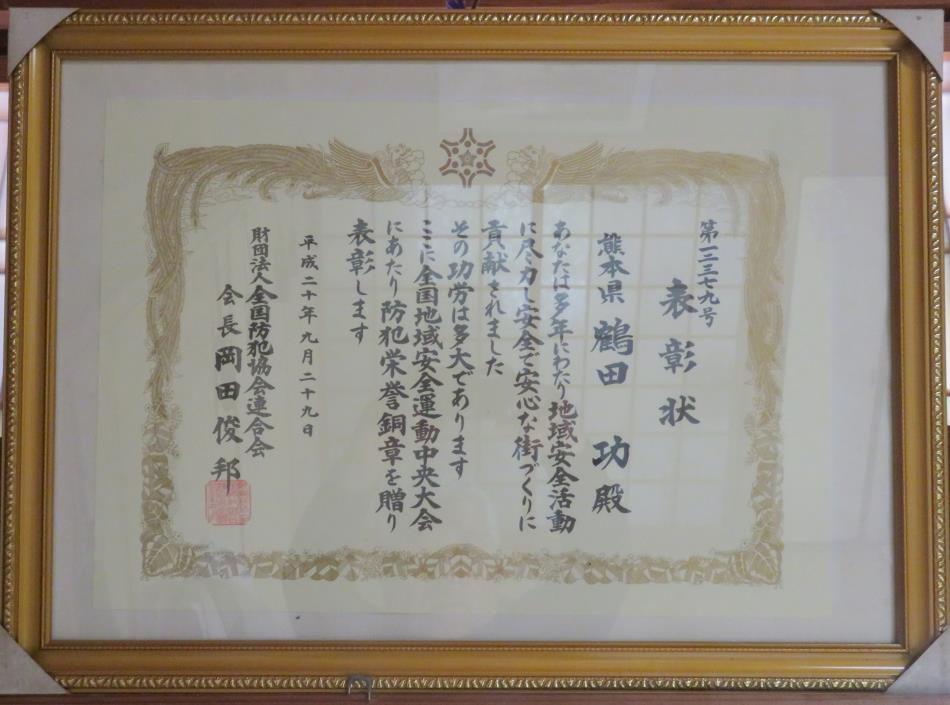 第一二三七九号
表彰状
熊本県 鶴田 功 殿
あなたは多年にわたり地域安全活動
に尽力し安全で安心な街づくりに
貢献されました
その功労は多大であります
ここに全国地域安全運動中央大会
にあたり防犯栄誉銅章を贈り
表彰します
平成二十年九月二十九日
財団法人全国防犯協会連合会
会長 岡田俊邦